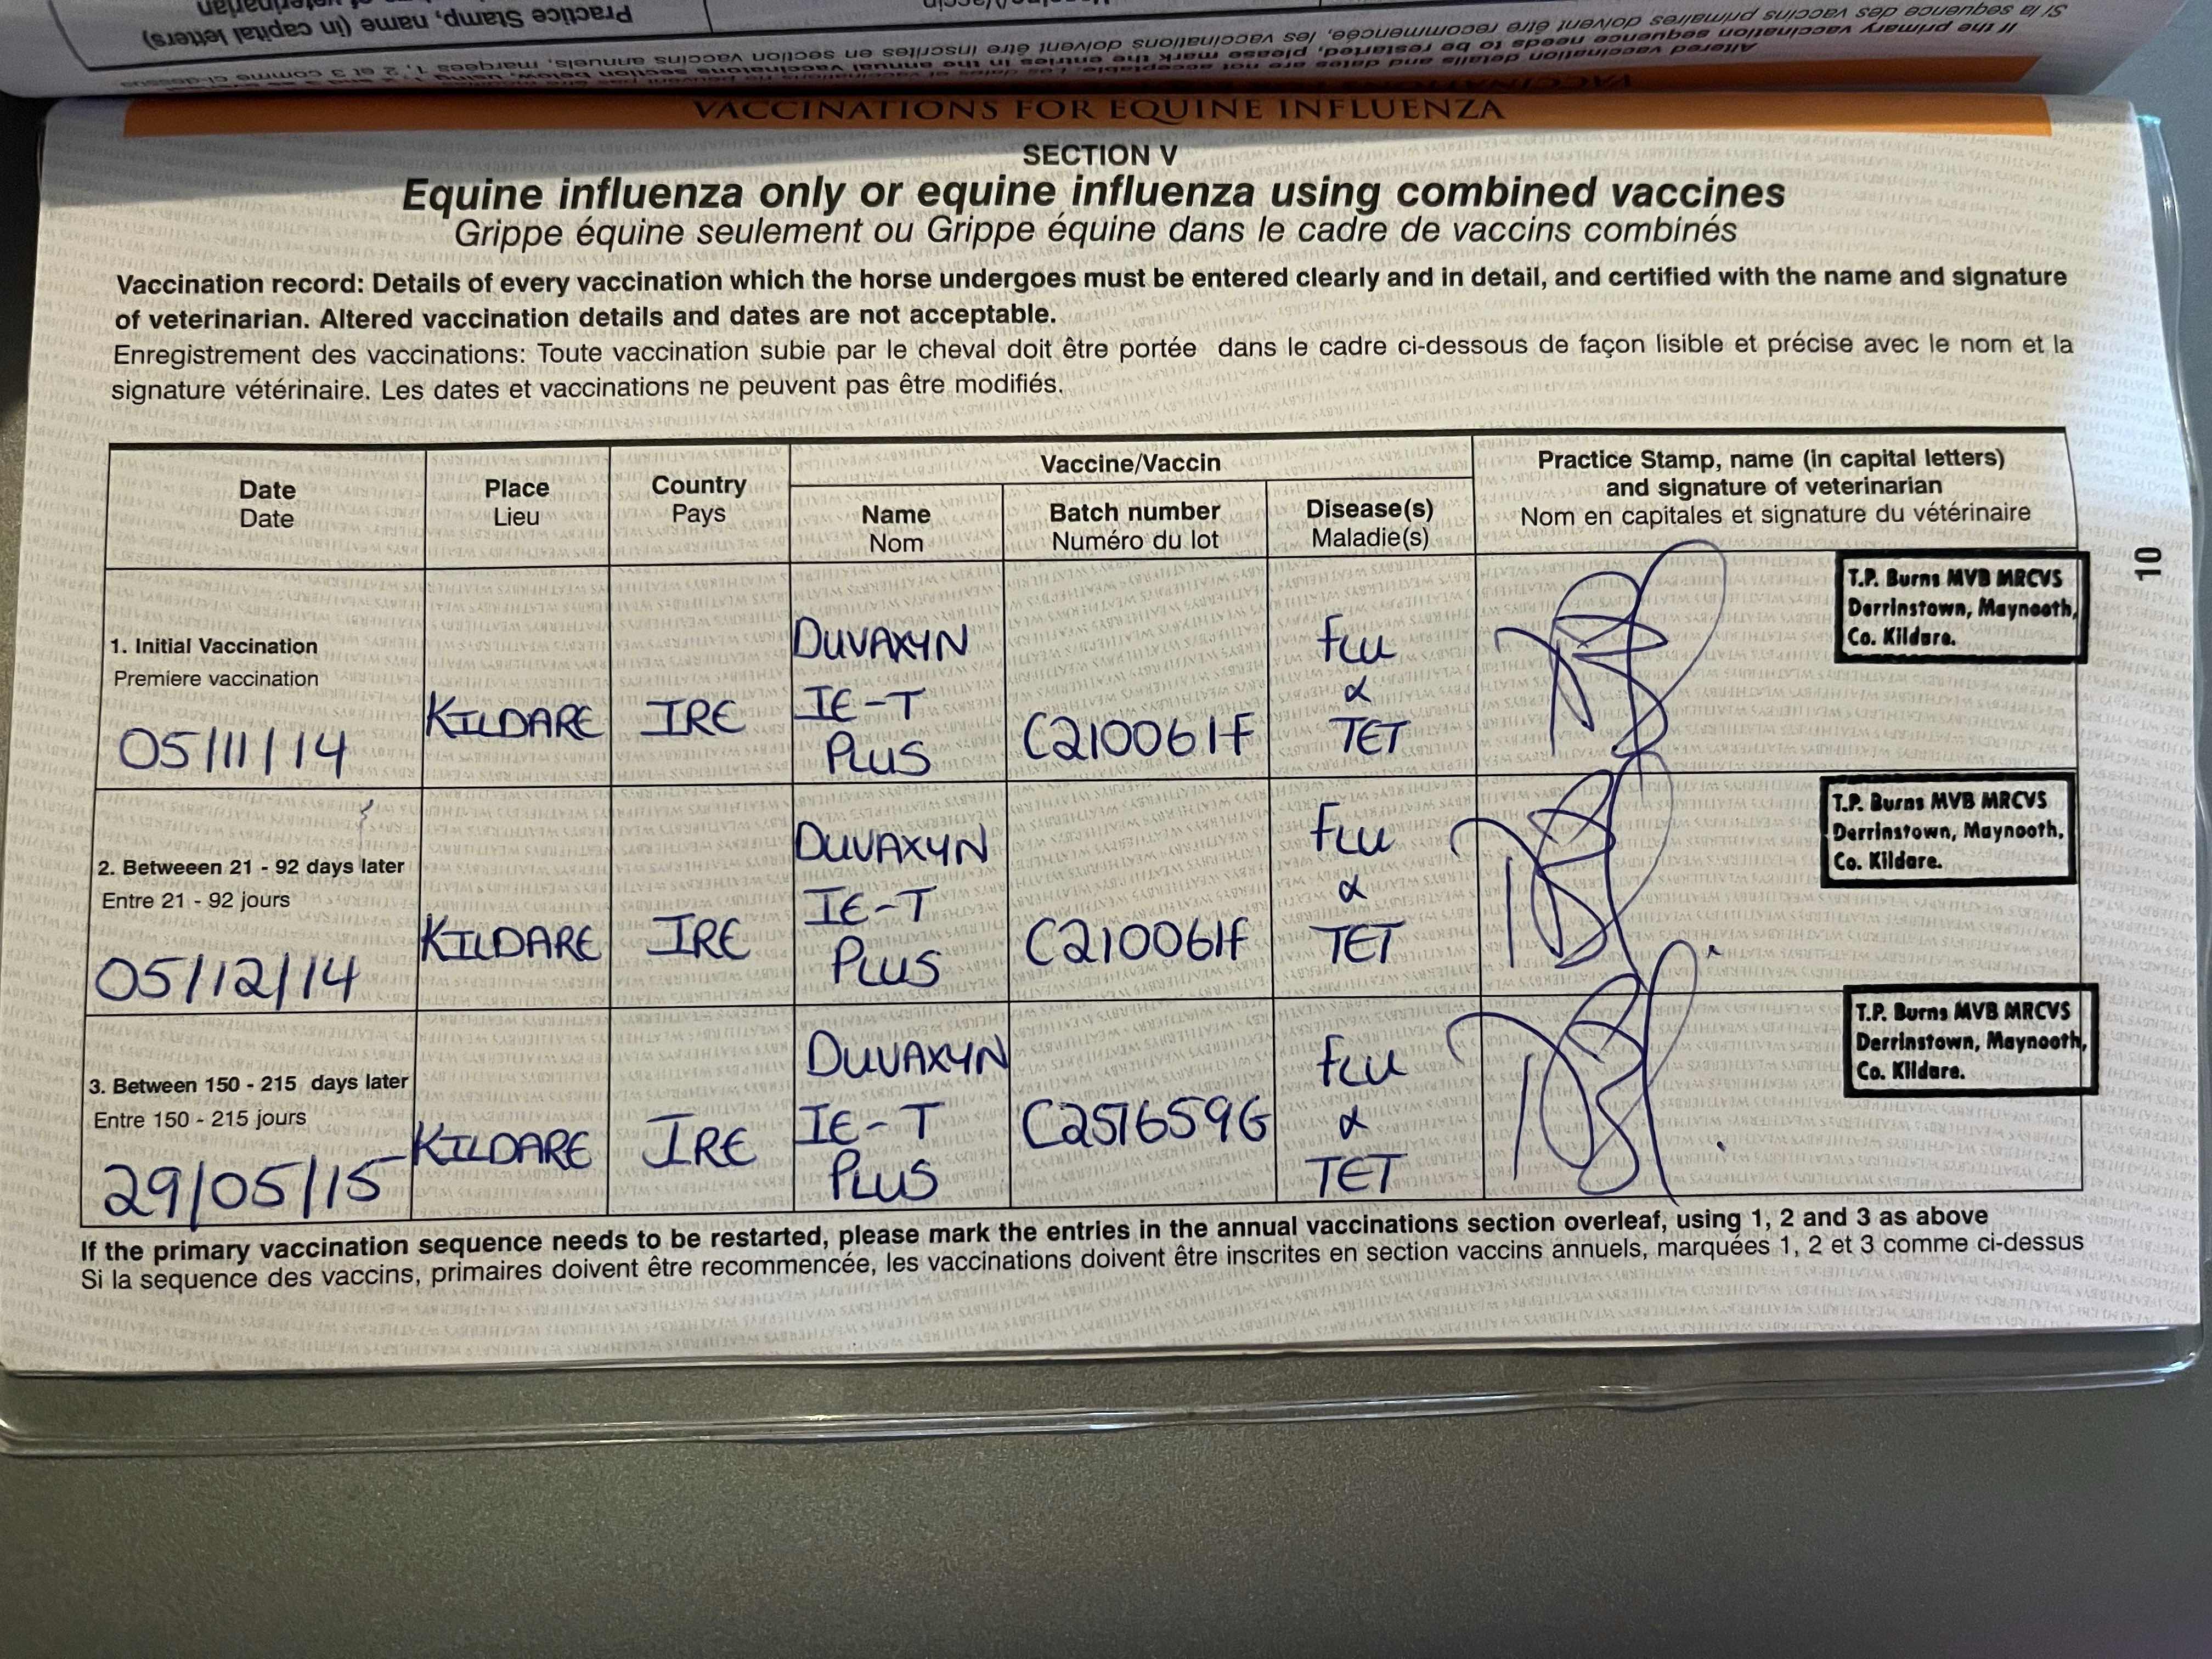 Practice Stamp, name (in capital letters)
If the primary vaccination sequence needs to be restarted, please mark the entries in the annual vaccinations section below, using 1,
Si la sequence des vaccins primaires doivent être recommencée, les vaccinations doivent être inscrites en section vaccins annuels, marquées 1, 2 et 3 comme ci-dessus
Altered vaccination details and dates are not acceptable.
VACCINATIONS FOR EQUINE INFLUENZA
SECTION V
Equine influenza only or equine influenza using combined vaccines
Grippe équine seulement ou Grippe équine dans le cadre de vaccins combinés
Vaccination record: Details of every vaccination which the horse undergoes must be entered clearly and in detail, and certified with the name and signature
of veterinarian. Altered vaccination details and dates are not acceptable.
Enregistrement des vaccinations: Toute vaccination subie par le cheval doit être portée dans le cadre ci-dessous de façon lisible et précise avec le nom et la
signature vétérinaire. Les dates et vaccinations ne peuvent pas être modifiés.
Date
Date
Place
Lieu
Country
Pays
Vaccine/Vaccin
Name
Nom
Batch number
Numéro du lot
Disease(s)
Maladie(s)
Practice Stamp, name (in capital letters)
and signature of veterinarian
Nom en capitales et signature du vétérinaire
1. Initial Vaccination
Premiere vaccination
05/11/14
KILDARE
IRE
DUVAXYN
IE-T
PLUS
C210061F
FLU
&
TET
T.P. Burns MVB MRCVS
Derrinstown, Maynooth,
Co. Kildare.
2. Betweeen 21 - 92 days later
Entre 21 - 92 jours
05/12/14
KILDARE
IRE
DUVAXYN
IE-T
PLUS
C210061F
FLU
&
TET
T.P. Burns MVB MRCVS
Derrinstown, Maynooth,
Co. Kildare.
3. Between 150 - 215 days later
Entre 150 - 215 jours
29/05/15
KILDARE
IRE
DUVAXYN
IE-T
PLUS
C251659G
FLU
&
TET
T.P. Burns MVB MRCVS
Derrinstown, Maynooth,
Co. Kildare.
If the primary vaccination sequence needs to be restarted, please mark the entries in the annual vaccinations section overleaf, using 1, 2 and 3 as above
Si la sequence des vaccins, primaires doivent être recommencée, les vaccinations doivent être inscrites en section vaccins annuels, marquées 1, 2 et 3 comme ci-dessus
10